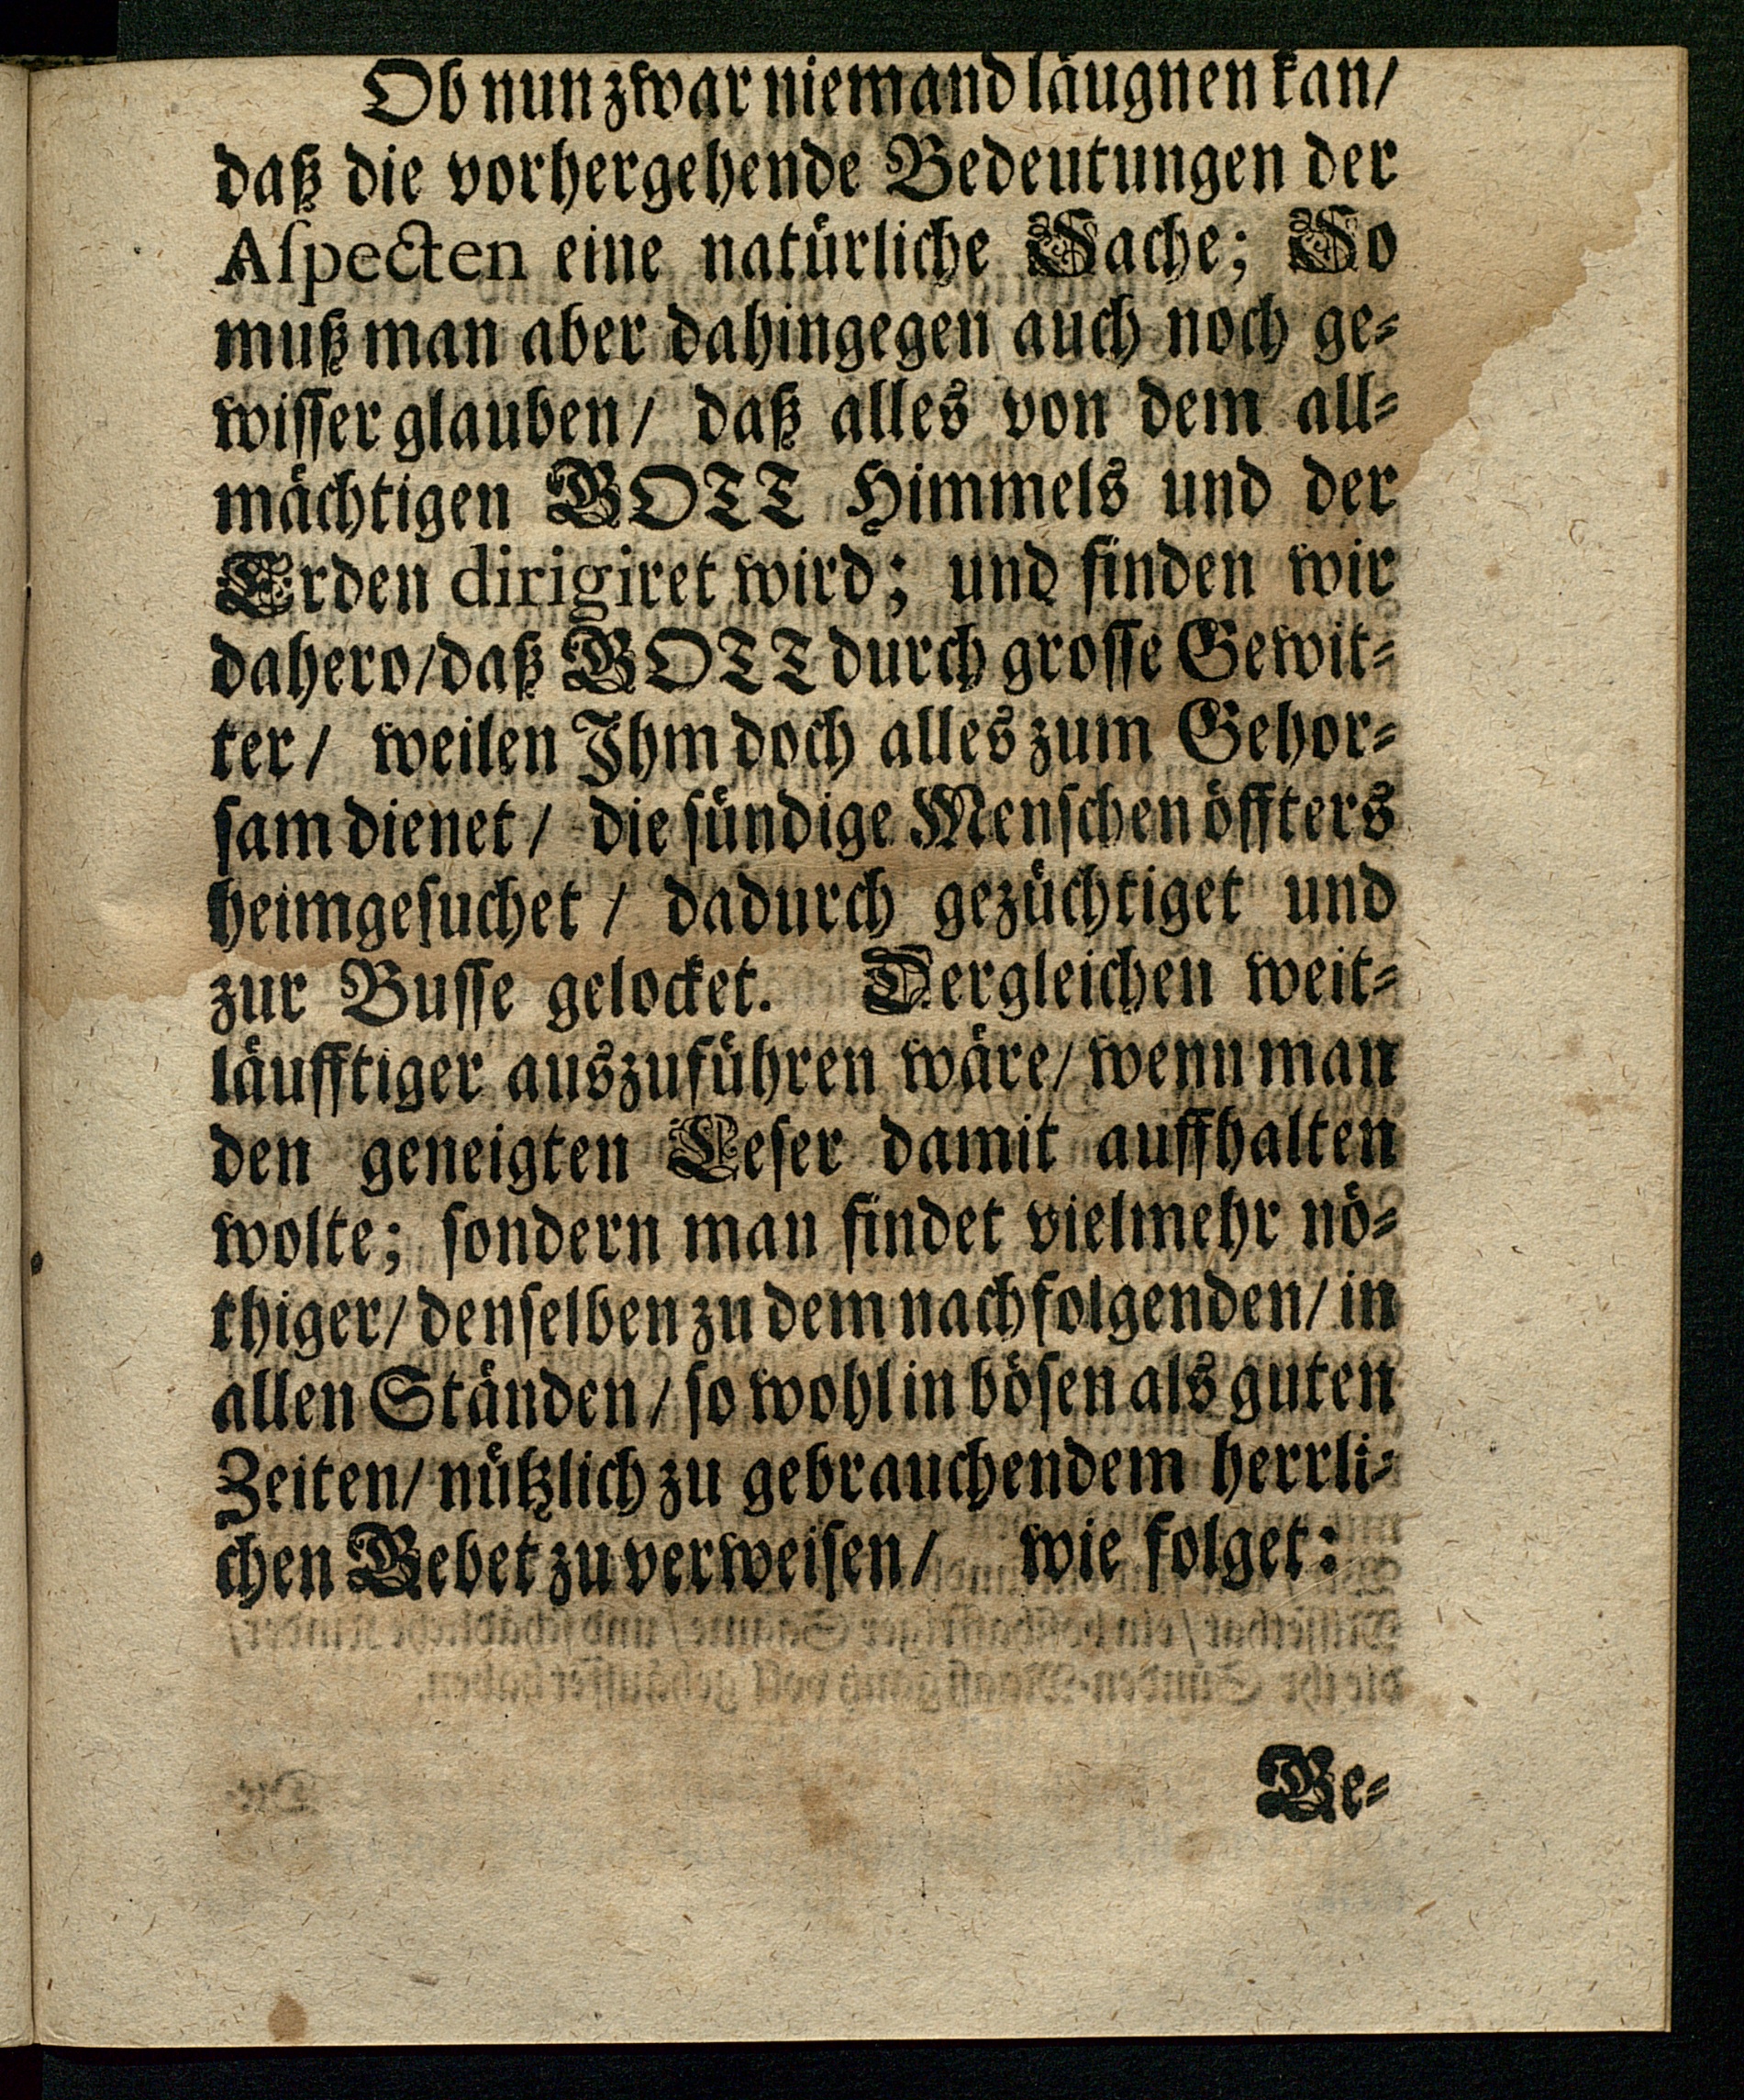 Ob nun zwar niemand läugnen kan/
daß die vorhergehende Bedeutungen der
Aſpecten eine natürliche Sache; So
muß man aber dahingegen auch noch ge⸗
wiſſer glauben/ daß alles von dem all⸗
mächtigen GOTT Himmels und der
Erden dirigiret wird; und finden wir
dahero/ daß GOTT durch groſſe Gewit⸗
ter/ weilen Ihm doch alles zum Gehor⸗
ſam dienet/ die ſündige Menſchen öffters
heimgeſuchet/ dadurch gezüchtiget und
zur Buſſe gelocket. Dergleichen weit⸗
läufftiger auszuführen wäre/ wenn man
den geneigten Leſer damit auffhalten
wolte; ſondern man findet vielmehr nö⸗
thiger/ denſelben zu dem nachfolgenden/ in
allen Ständen/ ſo wohl in böſen als guten
Zeiten/ nützlich zu gebrauchendem herrli⸗
chen Gebet zu verweiſen/ wie folget:
Ge⸗